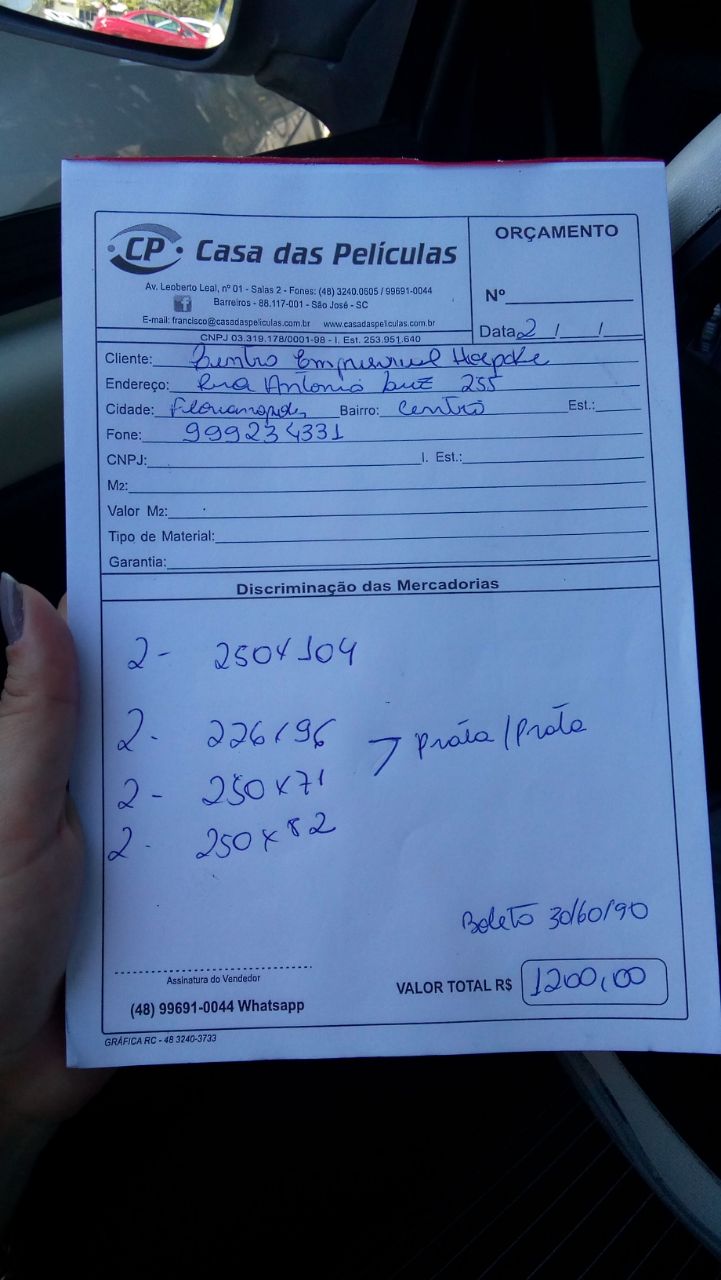 CP Casa das Películas
Av. Leoberto Leal, nº 01 - Salas 2 - Fones: (48) 3240.0605 / 99691-0044
Barreiros - 88.117-001 - São José - SC
E-mail: francisco@casadaspeliculas.com.br www.casadaspeliculas.com.br
CNPJ 03.319.178/0001-98 - I. Est. 253.951.640
ORÇAMENTO
Nº
Data 2 / /
Cliente: Centro Empresarial Hoepcke
Endereço: Rua Antonio Luz 255
Cidade: Florianopolis Bairro: Centro Est.:
Fone: 999234331
CNPJ: I. Est.:
M2:
Valor M2:
Tipo de Material:
Garantia:
Discriminação das Mercadorias
2 - 250x104
2 - 226x96 > Prata/Prata
2 - 250x71
2 - 250x82
Boleto 30/60/90
Assinatura do Vendedor
VALOR TOTAL R$ 1200,00
(48) 99691-0044 Whatsapp
GRÁFICA RC - 48 3240-3733